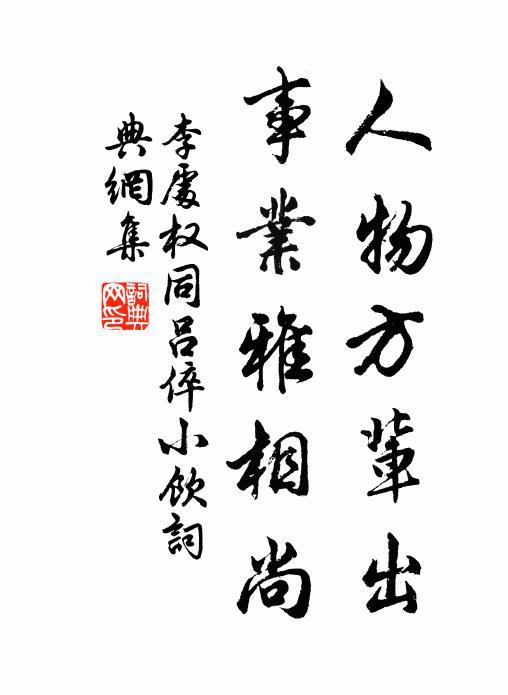 人物方輩出
事業雅相尚
李處权同吕倅小飲詞
典網集
詞典網印